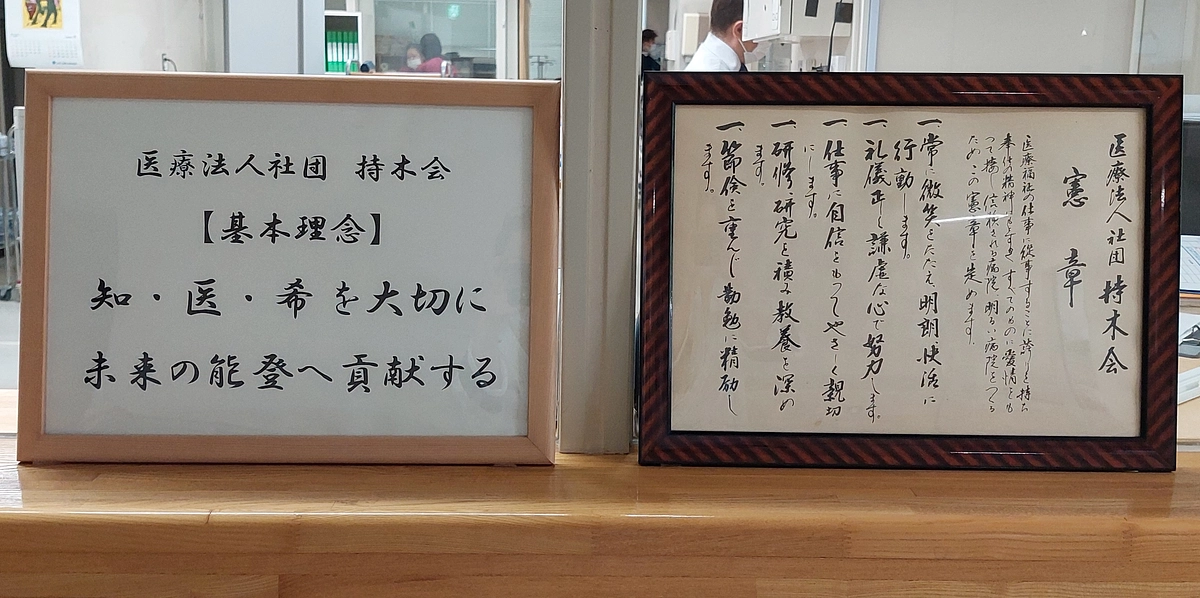 医療法人社団　持木会
【基本理念】
知・医・希を大切に
未来の能登へ貢献する
医療法人社団 持木会
憲章
医療福祉の仕事に従事することに誇りを持ち
奉仕の精神にもとずき、すべてのものに愛情をも
って接し、信頼される病院、明るい病院をつくる
ため、この憲章を定めます。
一、常に微笑をたたえ、明朗、快活に
行動します。
一、礼儀正しく謙虚な心で努力します。
一、仕事に自信をもってやさしく親切
にします。
一、研修、研究を積み教養を深め
ます。
一、節倹を重んじ勤勉に精励し
ます。